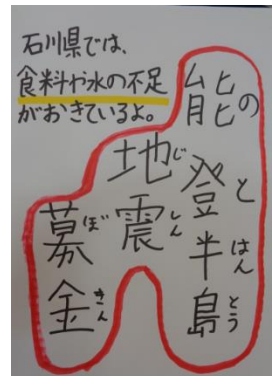 石川県では、
食料や水の不足
がおきているよ。
能の登と半はん島とう
地じ震しん
募ぼ金きん